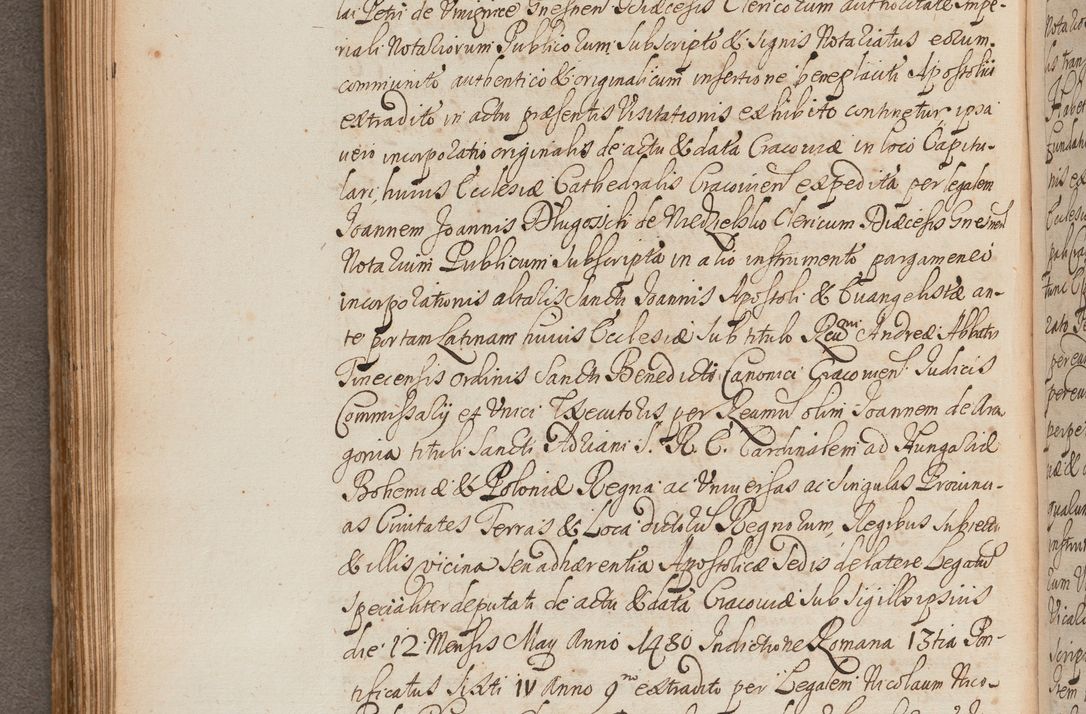 lai Petri de Vnignice Gnesnen Diæcesis Clericorum authoritate Impe-
riali Notariorum Publicorum subscripto & signis Notariatus eorum
communito authentico & originalium insertione beneplaciti Apostolici
extradito in actu præsentis Visitationis exhibito continetur ipsa
vero incorporatio originalis de actu & data Cracoviæ in loco Capitu-
lari huius Ecclesiæ Cathedralis Cracovien expedita per legalem
Joannem Joannis Długossii de Niedzielsko Clericum Diæcesis Gnesnen
Notarium Publicum subscripta in alio instrumento pargameneo
incorporationis altaris Sancti Joannis Apostoli & Euangelistæ an-
te portam Latinam huius Ecclesiæ sub titulo Rndi Andreæ Abbatis
Tinecensis ordinis Sancti Benedicti Canonici Cracovien Judicis
Commissarij et Vnici Executoris per Reṃum olim Joannem de Ara
gonia tituli Sancti Adriani S. R. E. Cardinalem ad Hungariæ
Bohemiæ & Poloniæ Regna ac Vniuersas ac singulas Prouinci-
as Ciuitates Terras & Loca dictorum Regnorum, Regibus subiecta
& illis vicina seu adhærentia Apostolicæ Sedis de latere Legatum
specialiter deputati de actu & data Cracoviæ sub sigillo ipsius
die 12 Mensis May Anno 1480 Indictione Romana 13tia Pon-
tificatus Sixti IV Anno 9no extradito per Legalem Nicolaum Nico-